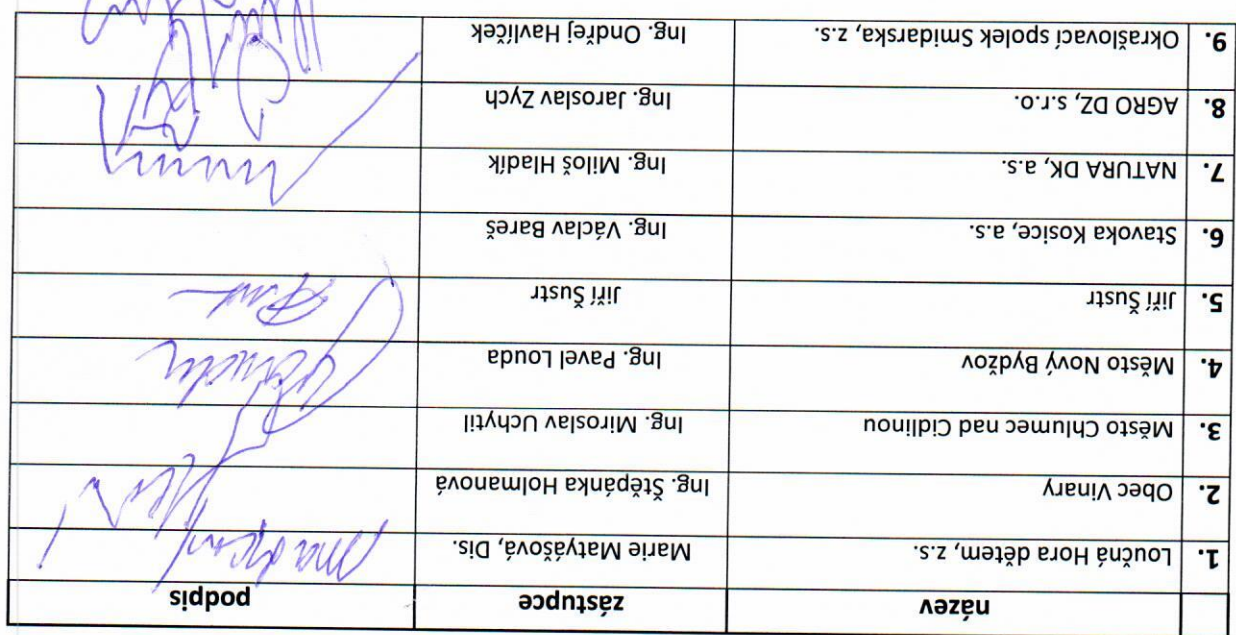 název zástupce podpis
1. Loučná Hora dětem, z.s. Marie Matyášová, Dis.
2. Obec Vinary Ing. Štěpánka Holmanová
3. Město Chlumec nad Cidlinou Ing. Miroslav Uchytil
4. Město Nový Bydžov Ing. Pavel Louda
5. Jiří Šustr Jiří Šustr
6. Stavoka Kosice, a.s. Ing. Václav Bareš
7. NATURA DK, a.s. Ing. Miloš Hladík
8. AGRO DZ, s.r.o. Ing. Jaroslav Zych
9. Okrašlovací spolek Smidarska, z.s. Ing. Ondřej Havlíček